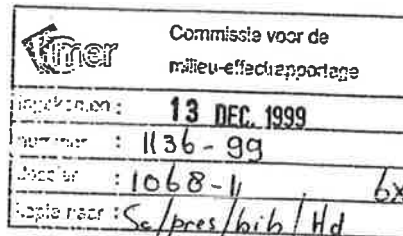 mer
Commissie voor de
milieu-effectrapportage
ingekomen : 13 DEC. 1999
nummer : 1136-99
dossier : 1068-4 6x
kopie naar : Sc/pres/bib/Hd